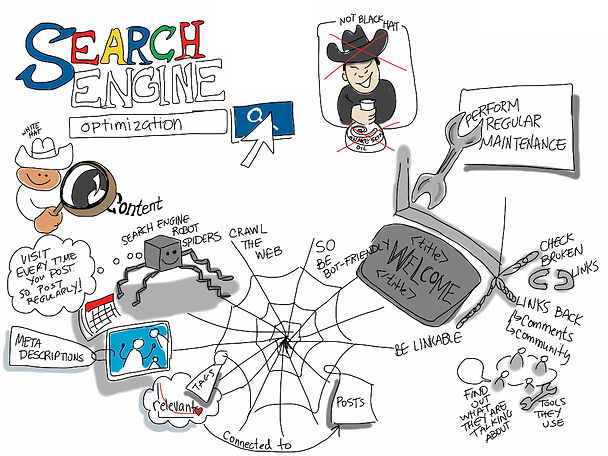 SEARCH
ENGINE
optimization
NOT BLACK HAT
OIL
PERFORM
REGULAR
MAINTENANCE
WHITE
HAT
Content
SEARCH ENGINE
ROBOT
SPIDERS
CRAWL
THE
WEB
SO
BE
BOT-FRIENDLY
<title>
WELCOME
</title>
CHECK
BROKEN
LINKS
VISIT
EVERY TIME
YOU POST
SO POST
REGULARLY!
LINKS BACK
Comments
Community
META
DESCRIPTIONS
BE LINKABLE
TAGS
relevant
POSTS
Connected to
FIND
OUT
WHAT
THEY ARE
TALKING
ABOUT
TOOLS
THEY
USE